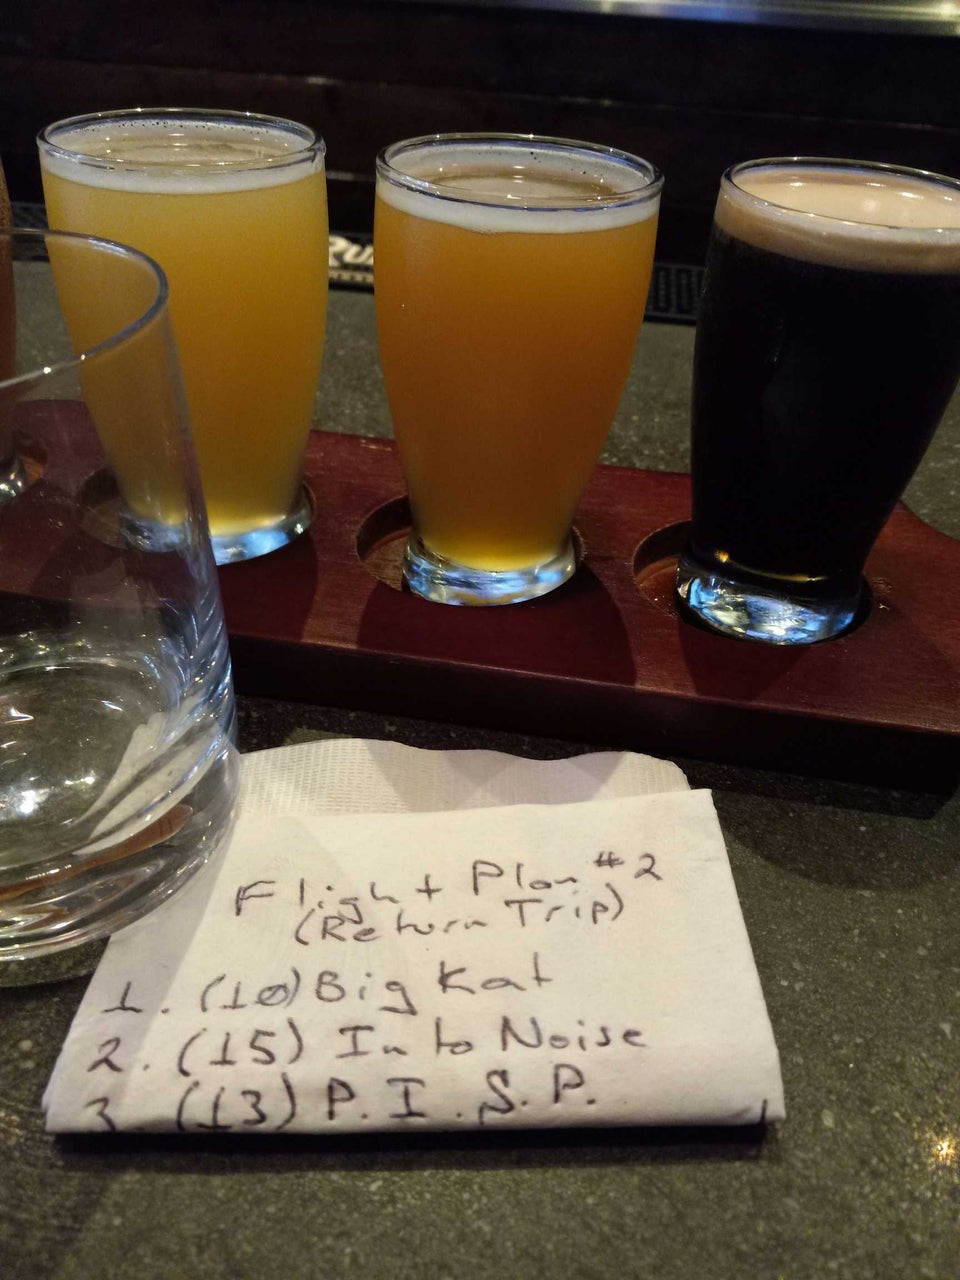 Flight Plan #2
(Return Trip)
1. (10) Big Kat
2. (15) In to Noise
3. (13) P.I.S.P.